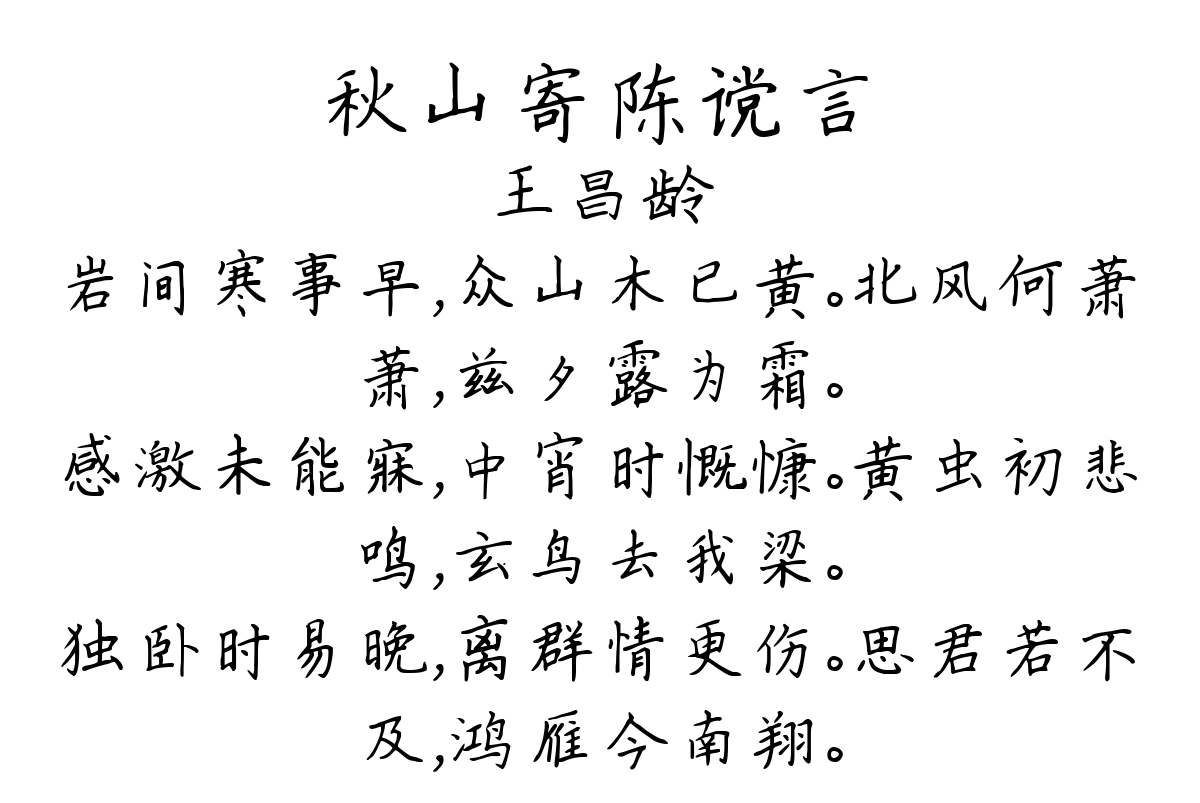 秋山寄陈谠言
王昌龄
岩间寒事早,众山木已黄。北风何萧
萧,兹夕露为霜。
感激未能寐,中宵时慨慷。黄虫初悲
鸣,玄鸟去我梁。
独卧时易晚,离群情更伤。思君若不
及,鸿雁今南翔。